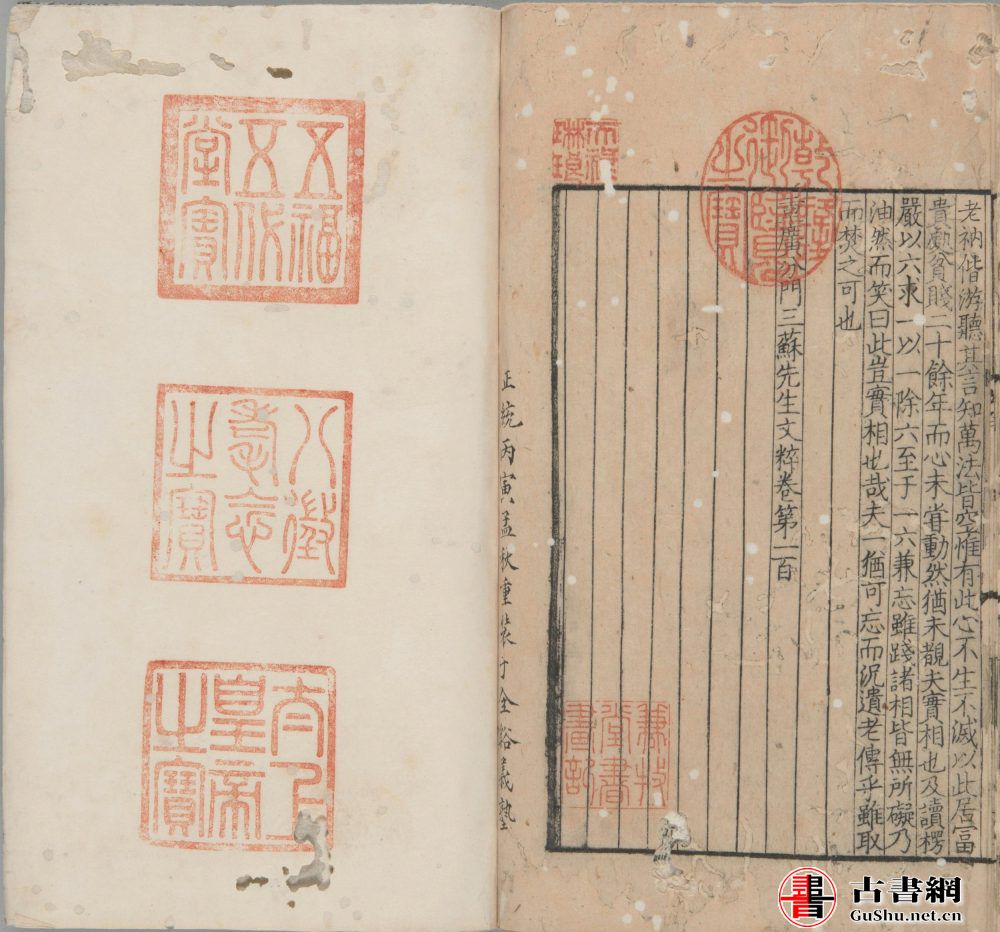 老衲偕游聽其言知萬法皆空惟有此心不生不滅以此居富
貴處貧賤二十餘年而心未甞動然猶未覩夫實相也及讀楞
嚴以六求一以一除六至于一六兼忘雖踐諸相皆無所礙乃
油然而笑曰此豈實相也哉夫一猶可忘而況遺老傳乎雖取
而焚之可也
廣分門三蘇先生文粹卷第一百
乾隆御覽之寶
天祿琳琅
兼牧堂書畫記
正統丙寅孟秋重裝于全裕義塾
五福五代堂寶
八徵耄念之寶
太上皇帝之寶
古書網
GuShu.net.cn